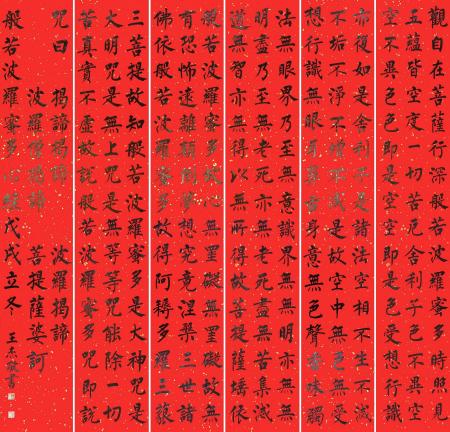 觀自在菩薩行深般若波羅蜜多時照見
五蘊皆空度一切苦厄舍利子色不異空
空不異色色即是空空即是色受想行識
亦復如是舍利子是諸法空相不生不滅
不垢不淨不增不減是故空中無色無受
想行識無眼耳鼻舌身意無色聲香味觸
法無眼界乃至無意識界無無明亦無無
明盡乃至無老死亦無老死盡無苦集滅
道無智亦無得以無所得故菩提薩埵依
般若波羅蜜多故心無罣礙無罣礙故無
有恐怖遠離顛倒夢想究竟涅槃三世諸
佛依般若波羅蜜多故得阿耨多羅三藐
三菩提故知般若波羅蜜多是大神咒是
大明咒是無上咒是無等等咒能除一切
苦真實不虛故說般若波羅蜜多咒即說
咒曰 揭諦揭諦 波羅揭諦
波羅僧揭諦 菩提薩婆訶
般若波羅蜜多心經戊戌立冬 王書